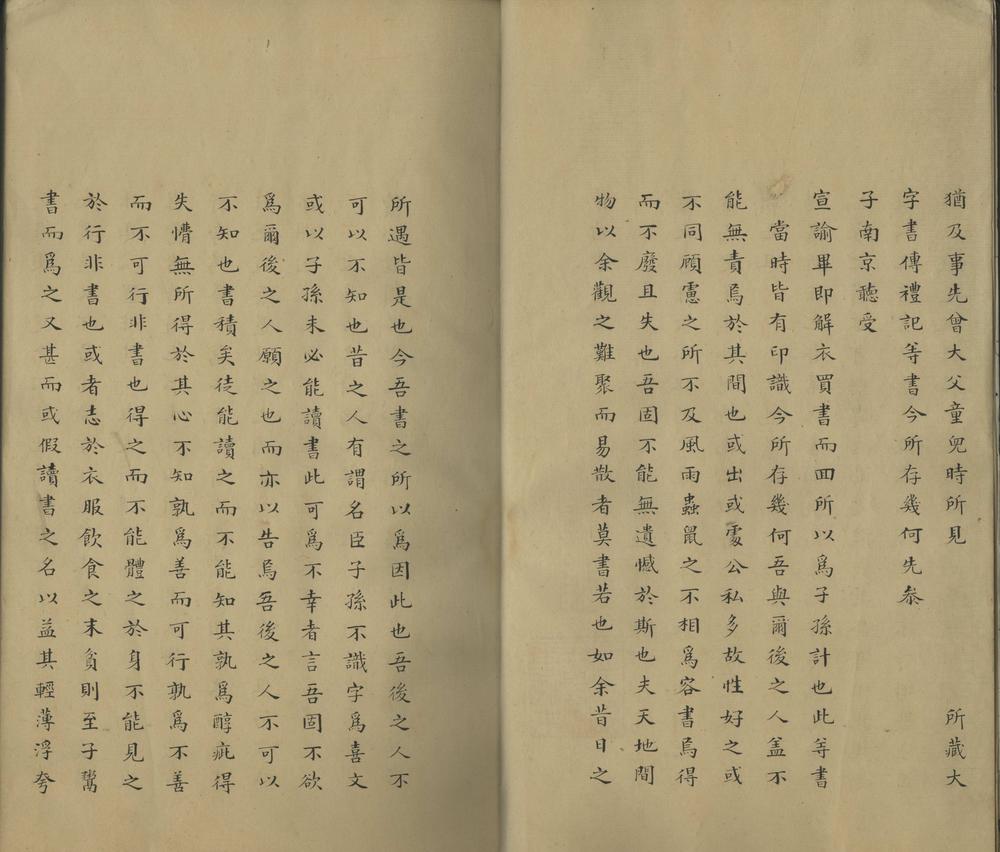 猶及事先曾大父童兒時所見　　　　　所藏大
字書傳禮記等書今所存幾何先叅
子南京聽受
宣諭畢即解衣買書而回所以爲子孫計也此等書
當時皆有印識今所存幾何吾與爾後之人盖不
能無責焉於其間也或出或處公私多故性好之或
不同顧慮之所不及風雨蟲鼠之不相爲容書焉得
而不廢且失也吾固不能無遺憾於斯也夫天地間
物以余觀之難聚而易散者莫書若也如余昔日之
所遇皆是也今吾書之所以爲因此也吾後之人不
可以不知也昔之人有謂名臣子孫不識字爲喜文
或以子孫未必能讀書此可爲不幸者言吾固不欲
爲爾後之人願之也而亦以告焉吾後之人不可以
不知也書積矣徒能讀之而不能知其孰爲醇疵得
失懵無所得於其心不知孰爲善而可行孰爲不善
而不可行非書也得之而不能體之於身不能見之
於行非書也或者志於衣服飲食之末貧則至子鬻
書而爲之又甚而或假讀書之名以益其輕薄浮夸